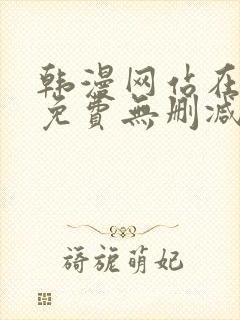 韩漫网佔在
免費無删减
旖旎萌妃